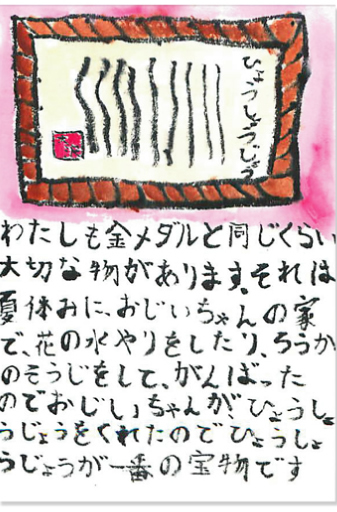 ひょうしょうじょう
わたしも金メダルと同じくらい
大切な物があります。それは
夏休みに、おじいちゃんの家
で、花の水やりをしたり、ろうか
のそうじをして、がんばった
のでおじいちゃんが、ひょうしょ
うじょうをくれたのでひょうしょ
うじょうが一番の宝物です